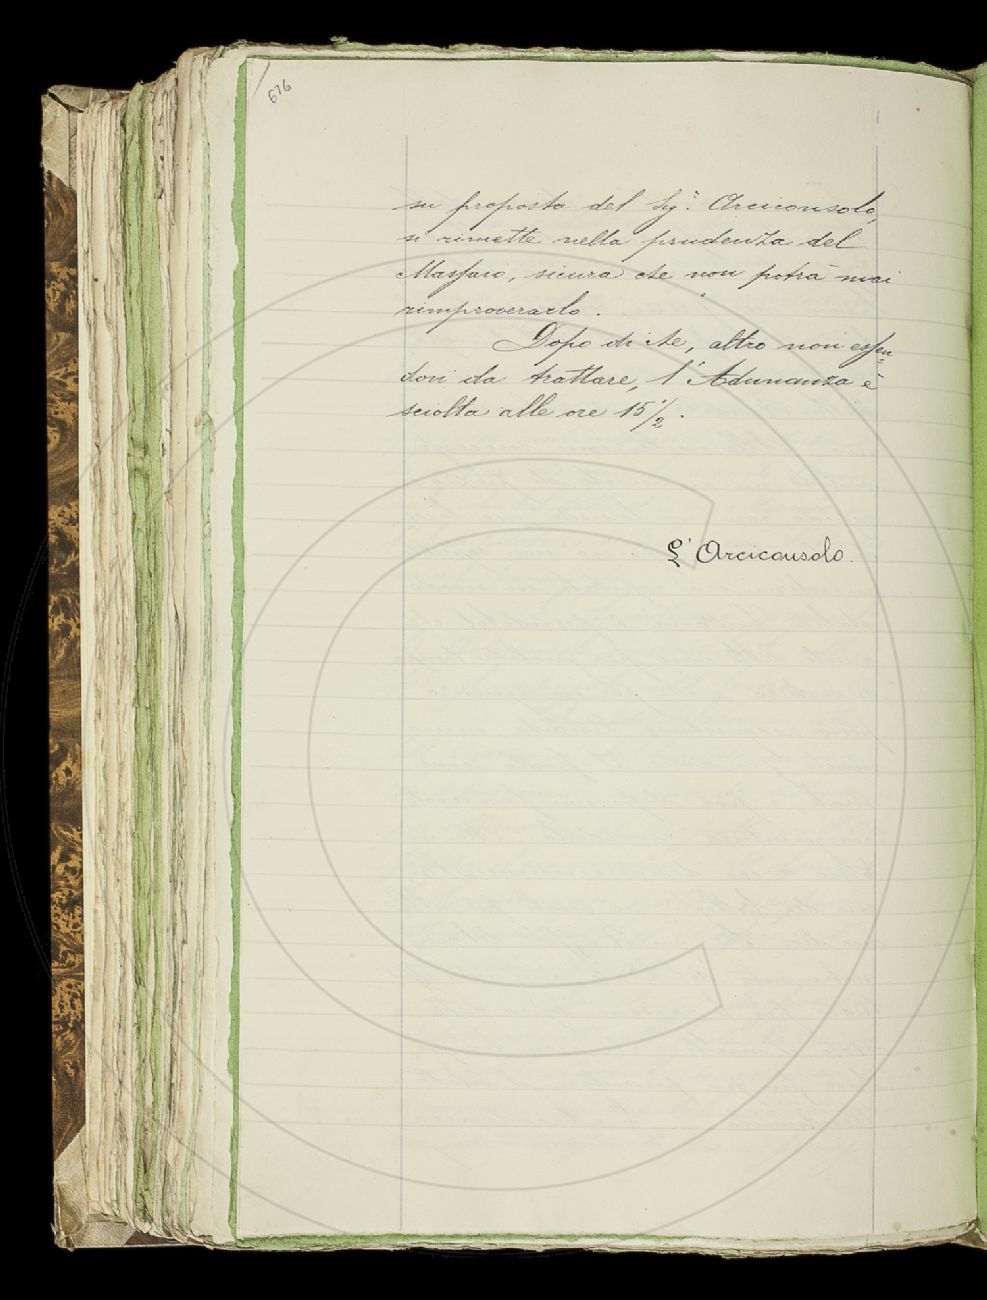 676
su proposta del Sig.r Arciconsolo,
si rimette nella prudenza del
Massaio, sicura che non potrà mai
rimproverarlo.
Dopo di che, altro non essen=
dovi da trattare, l'Adunanza è
sciolta alle ore 15 1/2.
L'Arciconsolo.